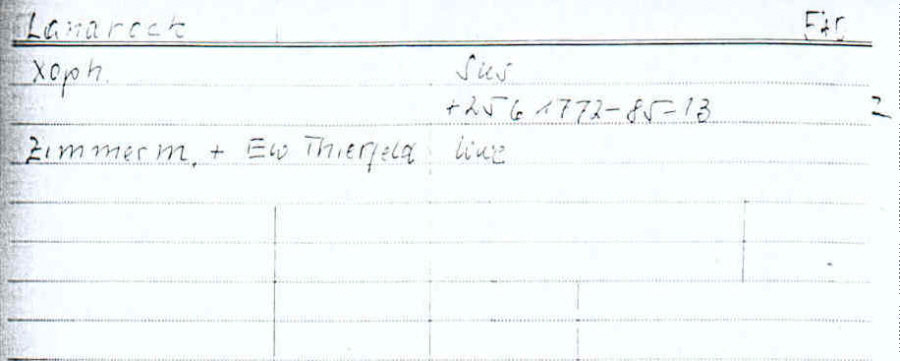 Landrock EhS
Xoph. Sus
+256 1772-85-13 2
Zimmerm. + Ew Thierfeld